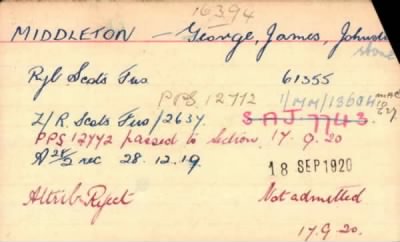 16394
MIDDLETON - George, James, Johnstone
Ryl Scots Fus 61355
PPS 12772 1/MM/13604
Z/R. Scots Fus/2637. SAJ 7743
PPS 12772 passed to Section 17.9.20
rec 28.12.19.
18 SEP 1920
Attrib: Reject Not admitted
17.9.20.